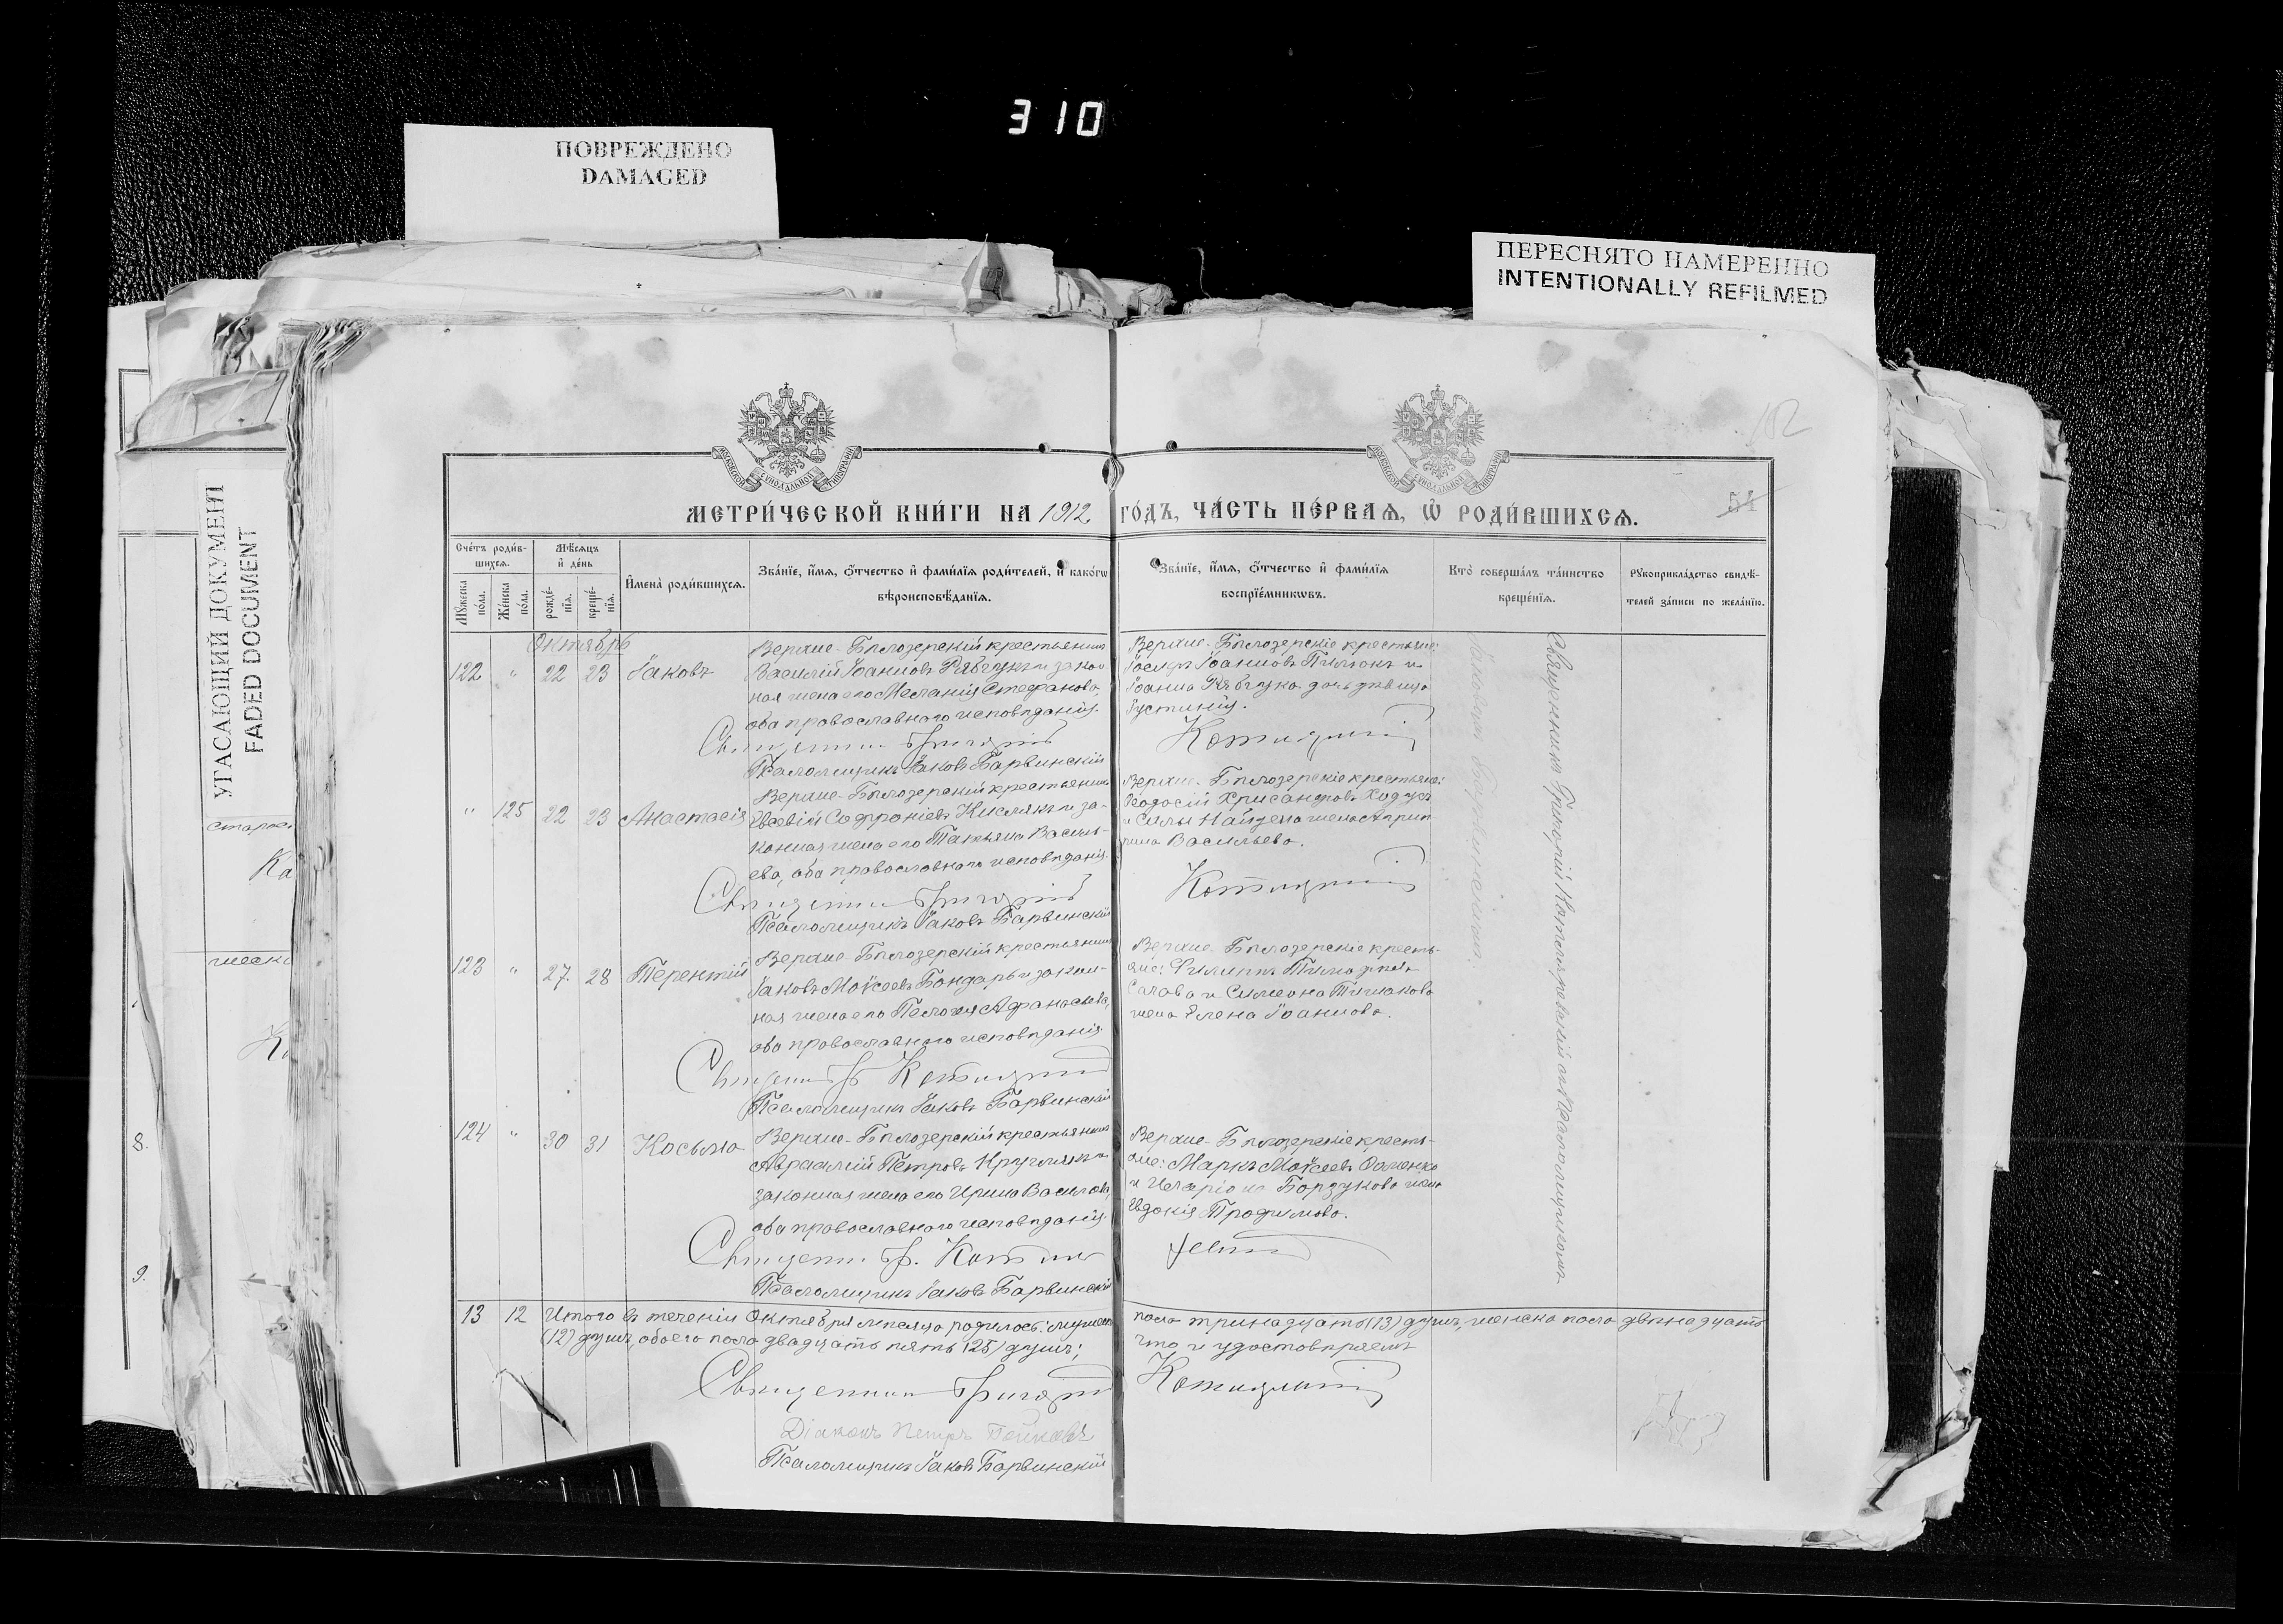 310
ПОВРЕЖДЕНО
DAMAGED
ПЕРЕСНЯТО НАМЕРЕННО
INTENTIONALLY REFILMED
УГАСАЮЩИЙ ДОКУМЕНТ
FADED DOCUMENT
8.
9.
102
54
МЕТРИ́ЧЕСКОЙ КНИ́ГИ НА 1912 ГО́ДЪ, ЧА́СТЬ ПЕ́РВАѦ, Ѡ҆ РОДИ́ВШИХСѦ.
Сче́тъ роди́в-
шихсѧ.
Мѣ́сѧцъ
и҆ де́нь
Мꙋ́жеска по́ла.
Же́нска по́ла.
рожде́-
нїѧ.
креще́-
нїѧ.
И҆мена̀ роди́вшихсѧ.
Зва́нїе, и҆́мѧ, ѻ҆́тчество и҆ фами́лїѧ роди́телей, и҆ како́гѡ
вѣроисповѣ́данїѧ.
Зва́нїе, и҆́мѧ, ѻ҆́тчество и҆ фами́лїѧ
воспрїе́мникѡвъ.
Кто̀ соверша́лъ та́инство
креще́нїѧ.
Рꙋкоприкла́дство свидѣ́-
телей за́писи по жела́нїю.
Октябрь
122 " 22 23 Іаковъ
Верхне-Бѣлозерскій крестьянинъ
Василій Іоанновъ Рябчукъ и закон
ная жена его Меланія Стефанова,
оба православнаго исповѣданія.
Священникъ Григорій
Псаломщикъ Іаковъ Барвинскій
Верхне-Бѣлозерскіе крестьяне:
Іосифъ Іоанновъ Пилюкъ и
Іоанна Рябчука дочь дѣвица
Іустинія.
" 125 22 23 Анастасія
Верхне-Бѣлозерскій крестьянинъ
Евсевій Софроніевъ Кислякъ и за-
конная жена его Татьяна Василь-
ева, оба православнаго исповѣданія.
Священникъ Григорій
Псаломщикъ Іаковъ Барвинскій
Верхне-Бѣлозерскіе крестьяне:
Ѳеодосій Хрисанфовъ Ходусъ
и Силы Найдена жена Агрип
пина Васильева.
123 " 27. 28 Терентій
Верхне-Бѣлозерскій крестьянинъ
Іаковъ Моѵсеевъ Бондарь и закон-
ная жена его Пелагія Афанасьева,
оба православнаго исповѣданія
Священникъ Гр.
Псаломщикъ Іаковъ Барвинскій
Верхне-Бѣлозерскіе кресть-
яне: Филиппъ Тимофеевъ
и Симеона Тишакова
жена Елена Іоаннова.
124 " 30 31 Косьма
Верхне-Бѣлозерскій крестьянинъ
Авраамій Петровъ Круглякъ и
законная жена его Ирина Василова,
оба православнаго исповѣданія.
Священникъ Гр.
Псаломщикъ Іаковъ Барвинскій
Верхне-Бѣлозерскіе кресть-
яне: Маркъ Моѵсеевъ
и Иларіона Борзукова жена
Евдокія Трофимова.
Священникъ Григорій
съ Псаломщикомъ
Іаковомъ Барвинскимъ.
13 12 Итого въ теченіи Октября мѣсяца родилось: мужеска пола тринадцать (13) душъ, женска пола двѣнадцать
(12) душъ, обоего пола двадцать пять (25) душъ; что и удостовѣряемъ
Священникъ Григорій
Діаконъ Петръ
Псаломщикъ Іаковъ Барвинскій